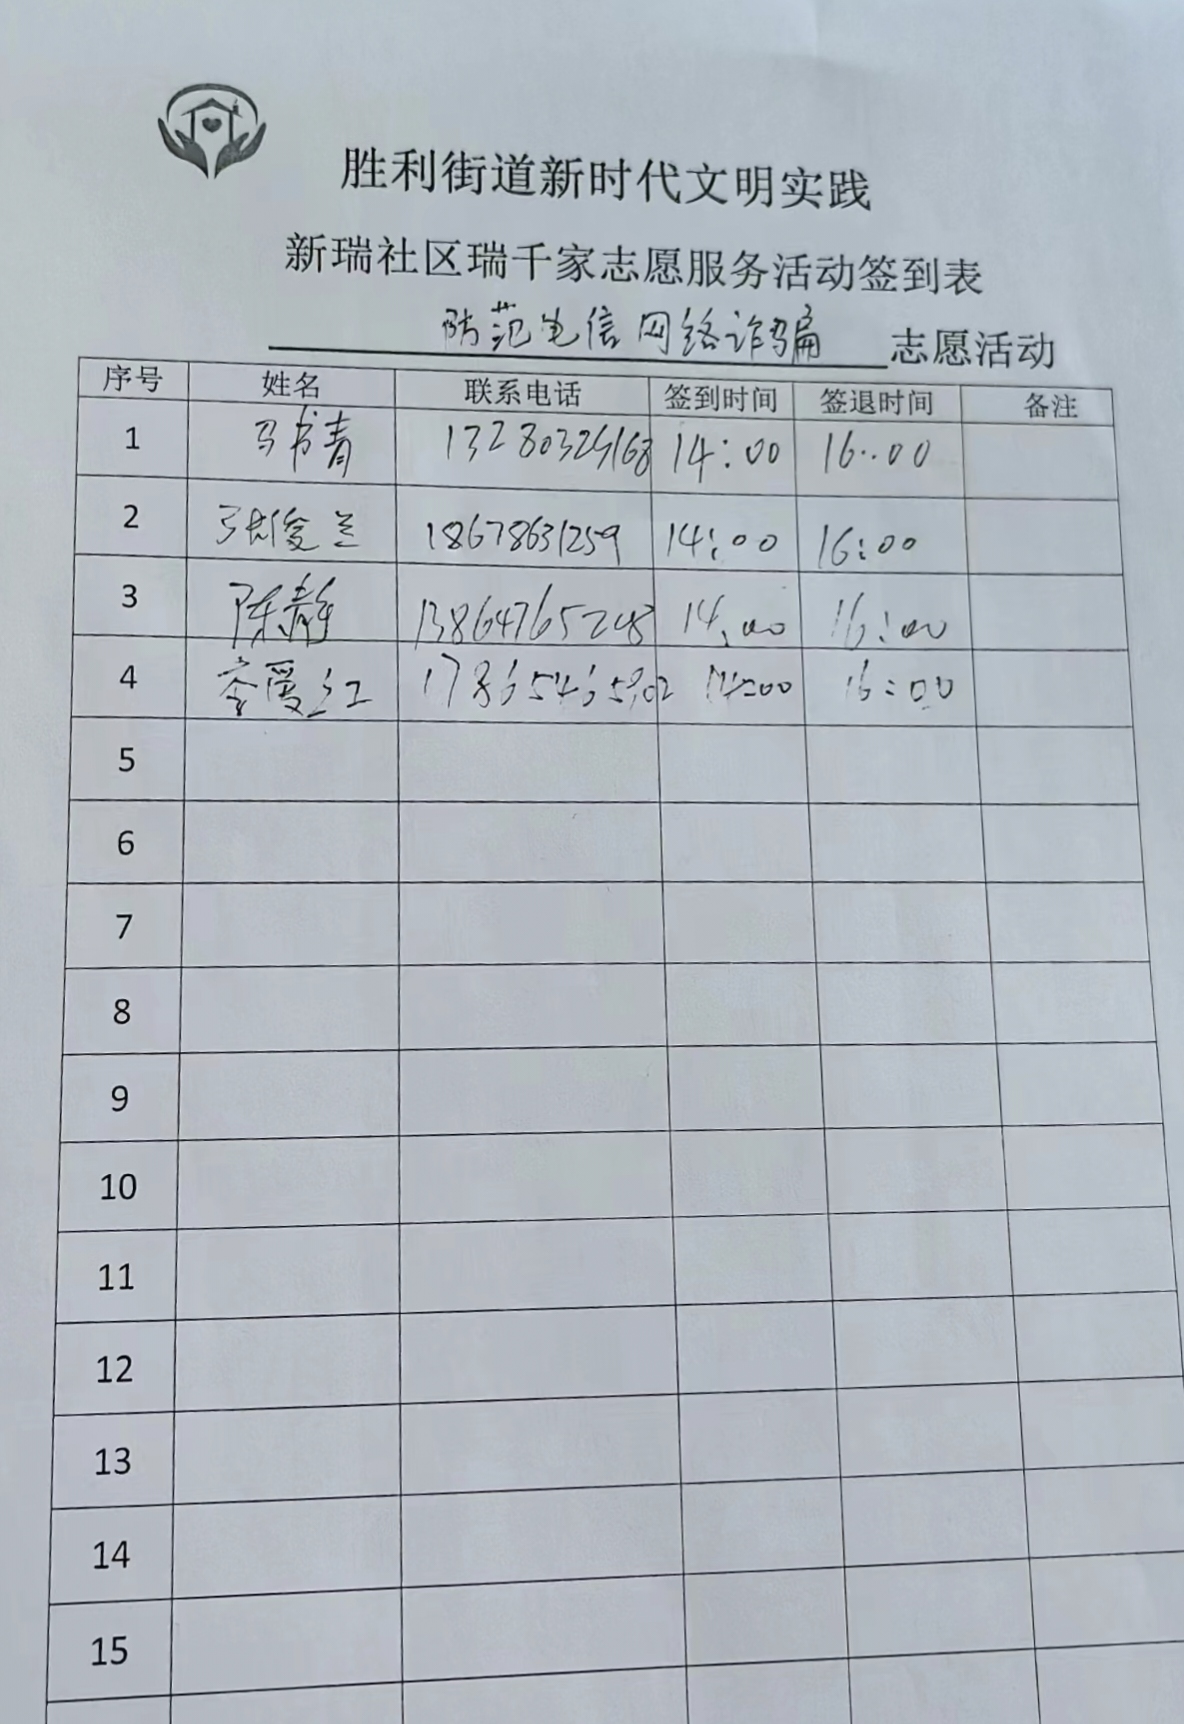 胜利街道新时代文明实践
新瑞社区瑞千家志愿服务活动签到表
防范电信网络诈骗 志愿活动
序号 姓名 联系电话 签到时间 签退时间 备注
1 马书青 13280329168 14:00 16:00
2 张俊兰 18678631259 14:00 16:00
3 陈静 13864765248 14:00 16:00
4 李爱红 17865465902 14:00 16:00
5
6
7
8
9
10
11
12
13
14
15